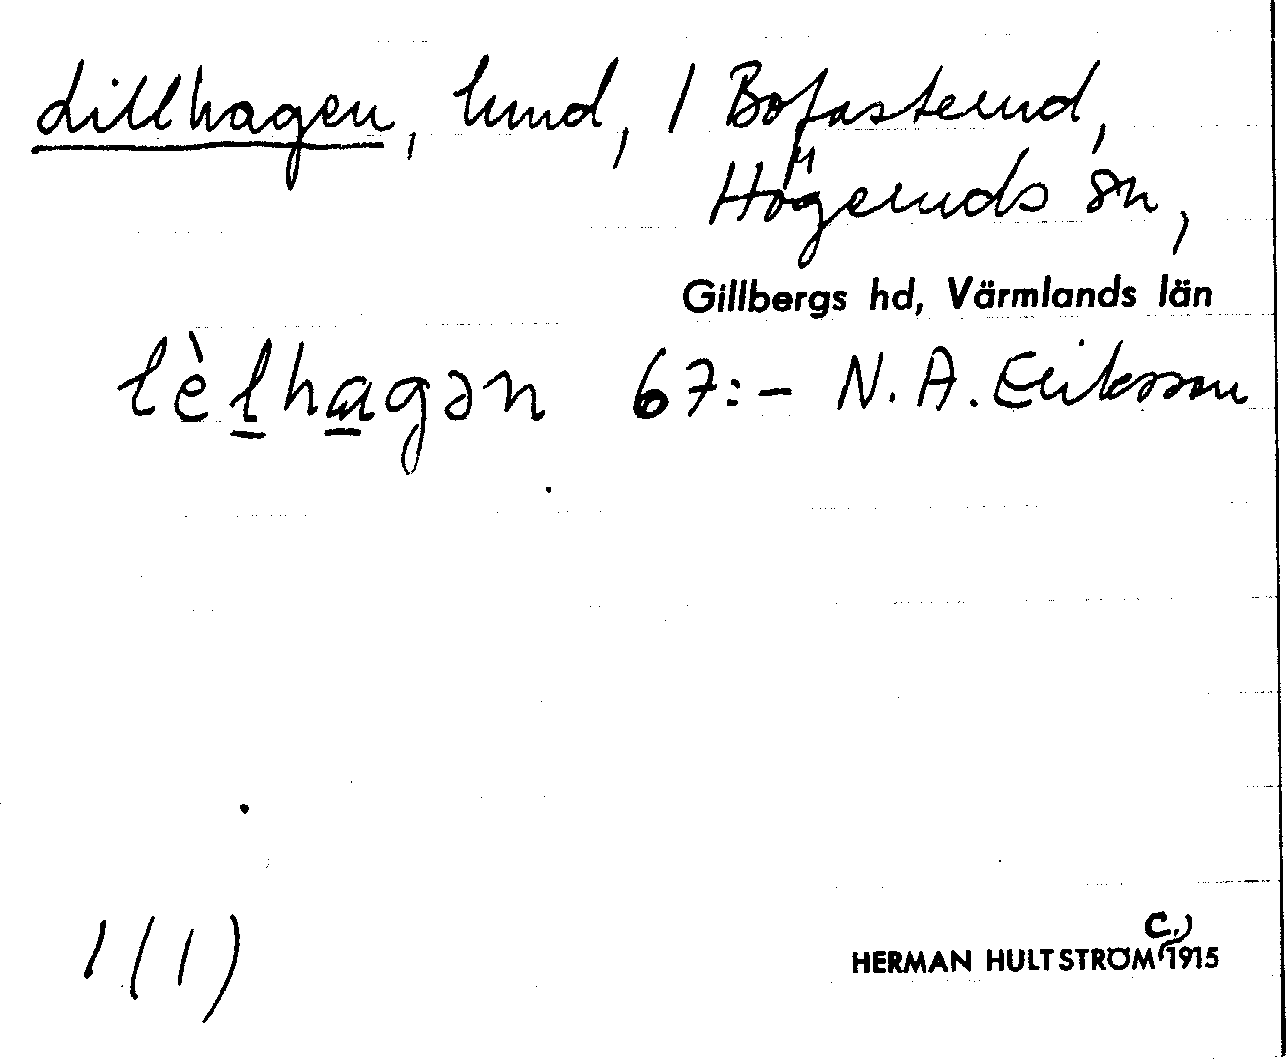 Lillhagen, lund, 1 Bofasterud,
Högeruds sn,
Gillbergs hd, Värmlands län
lèlhagən 67:- N. A. Eriksson
1 (1)
HERMAN HULTSTRÖM c. 1915